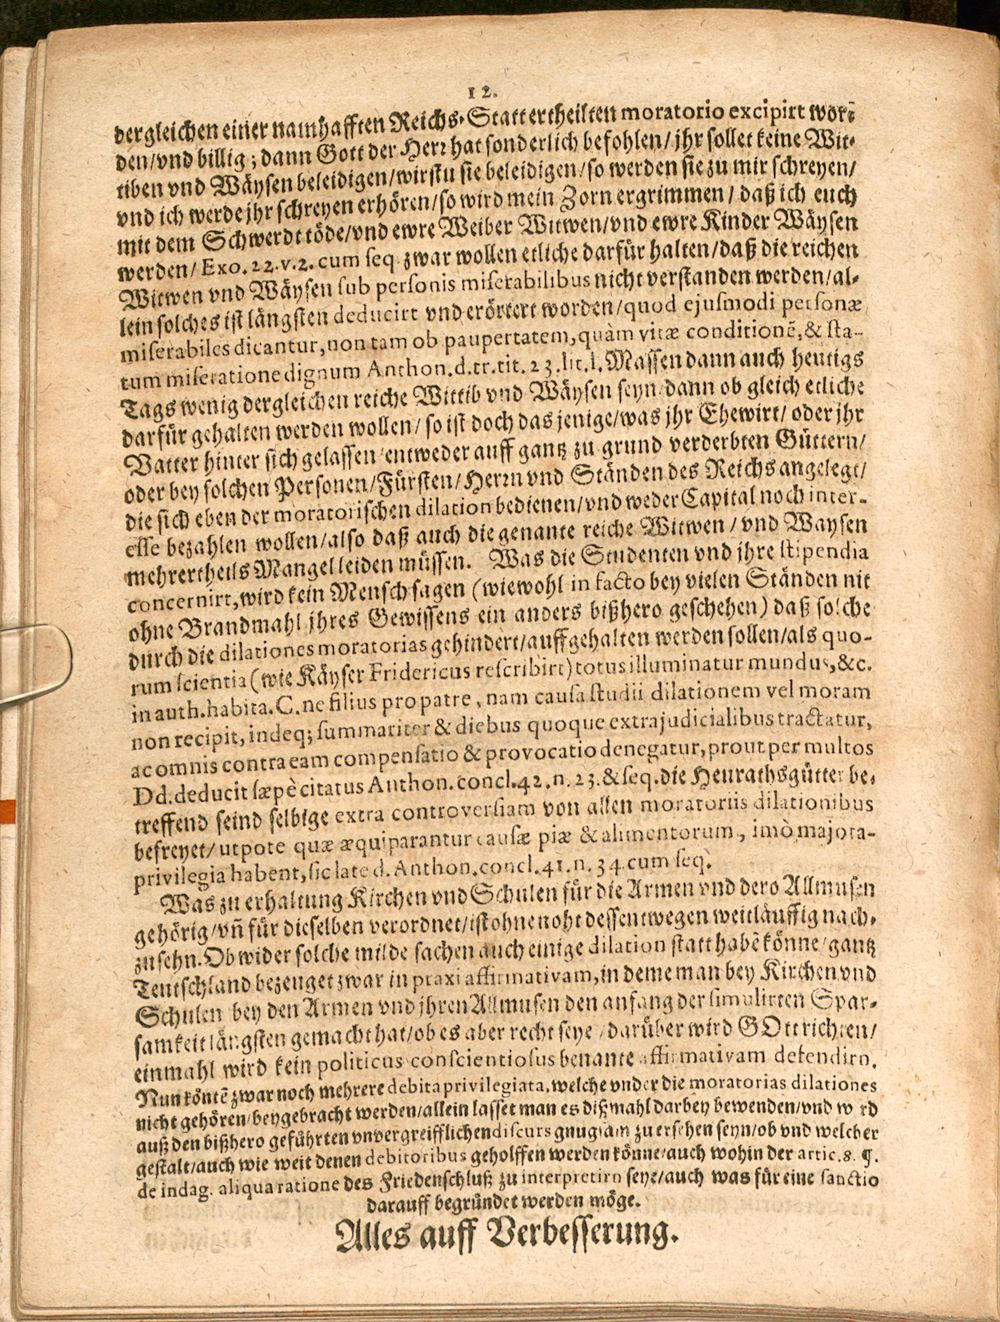 12.
dergleichen einer namhafften Reichs-Statt ertheilten moratorio excipirt wor-
den/vnd billig; dann Gott der Herr hat sonderlich befohlen/jhr sollet keine Wit-
tiben vnd Wäysen beleidigen/wirstu sie beleidigen/so werden sie zu mir schreyen/
vnd ich werde jhr schreyen erhören/so wird mein Zorn ergrimmen/daß ich euch
mit dem Schwerdt töde/vnd ewre Weiber Witwen/vnd ewre Kinder Wäysen
werden/Exo.22.v.2. cum seq zwar wollen etliche darfür halten/daß die reichen
Witwen vnd Wäysen sub personis miserabilibus nicht verstanden werden/al-
lein solches ist längsten deducirt vnd erörtert worden/quod ejusmodi personæ
miserabiles dicantur, non tam ob paupertatem, quàm vitæ conditionē, & sta-
tum miseratione dignum Anthon.d.tr.tit.23.lit.l. Massen dann auch heutigs
Tags wenig dergleichen reiche Wittib vnd Wäysen seyn/dann ob gleich etliche
darfür gehalten werden wollen/so ist doch das jenige/was jhr Ehewirt/oder jhr
Vatter hinter sich gelassen/entweder auff gantz zu grund verderbten Güttern/
oder bey solchen Personen/Fürsten/Herrn vnd Ständen des Reichs angelegt/
die sich eben der moratorischen dilation bedienen/vnd weder Capital noch inter-
esse bezahlen wollen/also daß auch die genante reiche Witwen/vnd Waysen
mehrertheils Mangel leiden müssen. Was die Studenten vnd jhre stipendia
concernirt, wird kein Mensch sagen (wiewohl in facto bey vielen Ständen nit
ohne Brandmahl jhres Gewissens ein anders bißhero geschehen) daß solche
durch die dilationes moratorias gehindert/auffgehalten werden sollen/als quo-
rum scientia (wie Käyser Fridericus rescribirt) totus illuminatur mundus, &c.
in auth.habita.C.ne filius pro patre, nam causa studii dilationem vel moram
non recipit, indeq; summariter & diebus quoque extrajudicialibus tractatur,
ac omnis contra eam compensatio & provocatio denegatur, prout per multos
Dd.deducit sæpè citatus Anthon.concl.42.n.23.& seq. die Heurathsgütter be-
treffend seind selbige extra controversiam von allen moratoriis dilationibus
befreyet/utpote quæ æquiparantur causæ piæ & alimentorum, imò majora-
privilegia habent, sic late d. Anthon.concl.41.n.34.cum seq.
Was zu erhaltung Kirchen vnd Schulen für die Armen vnd dero Allmusen
gehörig/vñ für dieselben verordnet/ist ohne noht dessentwegen weitläuffig nach-
zusehn. Ob wider solche milde sachen auch einige dilation statt habē könne/gantz
Teutschland bezeuget zwar in praxi affirmativam, in deme man bey Kirchen vnd
Schulen bey den Armen vnd jhren Allmusen den anfang der simulirten Spar-
samkeit längsten gemacht hat/ob es aber recht seye/darüber wird GOtt richten/
einmahl wird kein politicus conscientiosus benante affirmativam defendirn.
Nun köntē zwar noch mehrere debita privilegiata, welche vnder die moratorias dilationes
nicht gehören/beygebracht werden/allein lasset man es dißmahl darbey bewenden/vnd wird
auß den bißhero geführten vnvergreifflichen discurs gnugsam zu ersehen seyn/ob vnd welcher
gestalt/auch wie weit denen debitoribus geholffen werden könne/auch wohin der artic.8. §.
de indag. aliqua ratione des Friedenschluß zu interpretirn seye/auch was für eine sanctio
darauff begründet werden möge.
Alles auff Verbesserung.